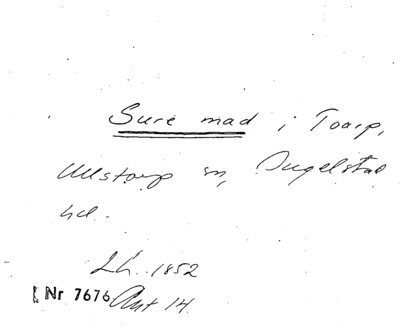 Sure mad i Toarp,
Ullstorp sn, Ingelstad
hd.
Lh. 1852
Nr 7676 Akt 14.